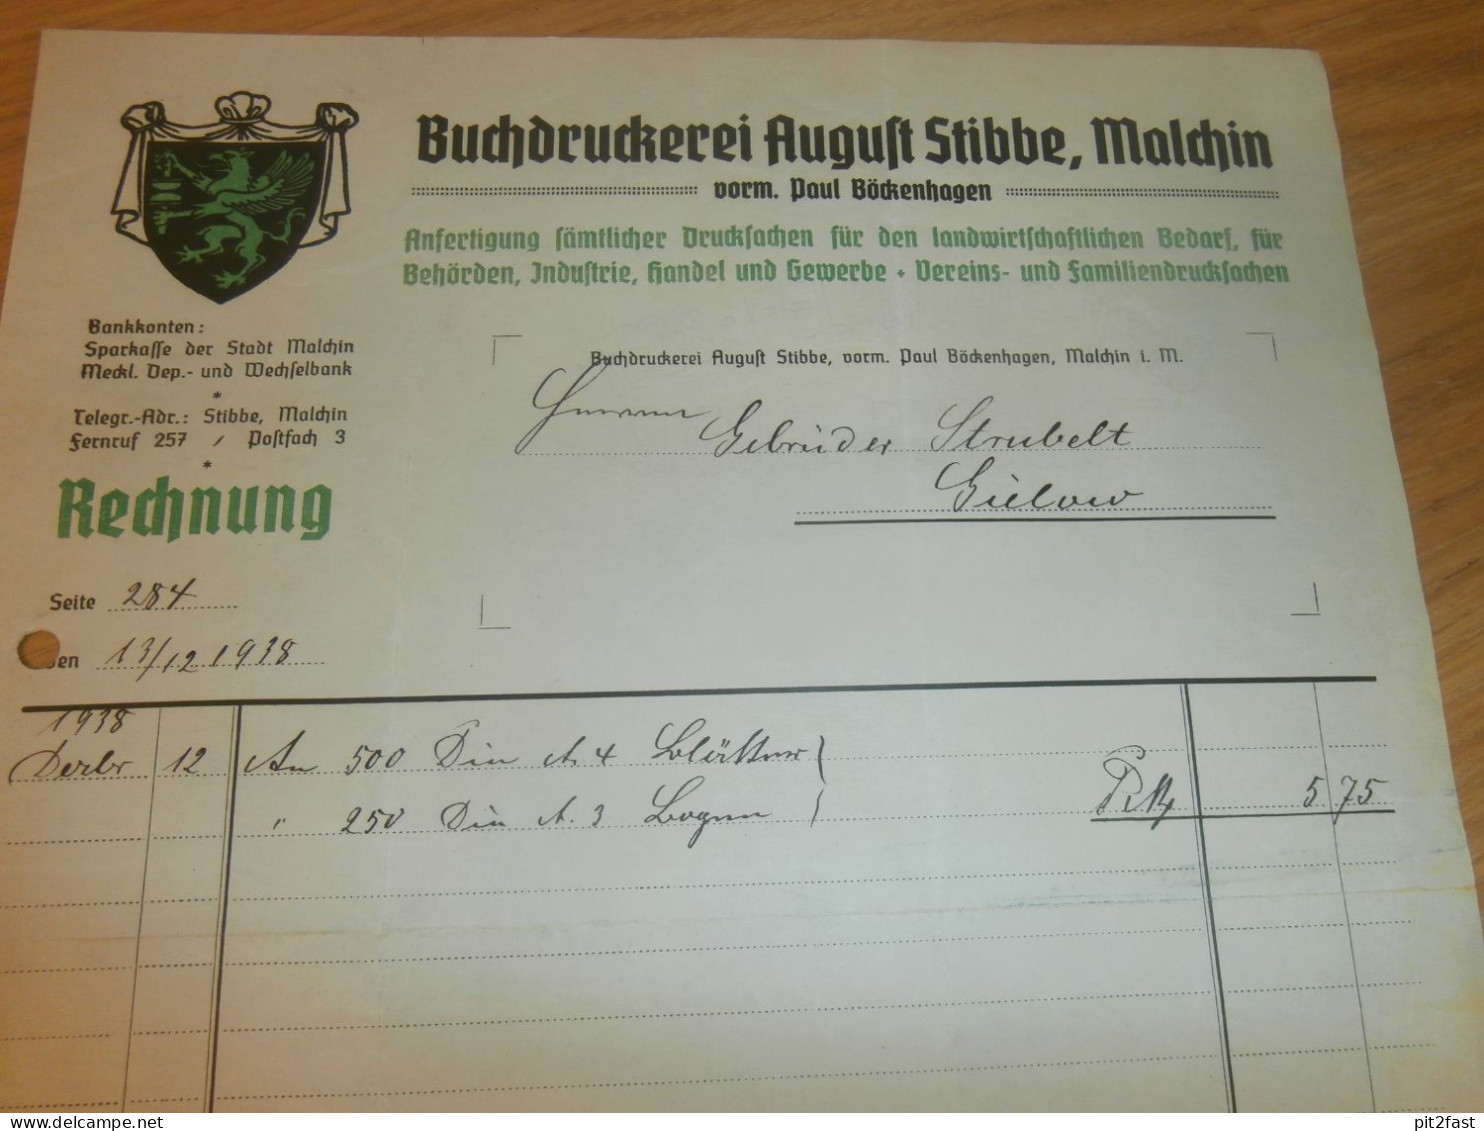 Buchdruckerei August Stibbe, Malchin
vorm. Paul Böckenhagen
Anfertigung sämtlicher Drucksachen für den landwirtschaftlichen Bedarf, für
Behörden, Industrie, Handel und Gewerbe • Vereins- und Familiendrucksachen
Bankkonten:
Sparkasse der Stadt Malchin
Meckl. Dep.- und Wechselbank
*
Telegr.-Adr.: Stibbe, Malchin
Fernruf 257 / Postfach 3
*
Rechnung
Buchdruckerei August Stibbe, vorm. Paul Böckenhagen, Malchin i. M.
Herren
Gebrüder Strubelt
Gülow
Seite 284
den 13/12 1938
1938
Dezbr 12 An 500 Din A 4 Blätter
" 250 Din A. 3 Bogen RM 5 75
pit2fast